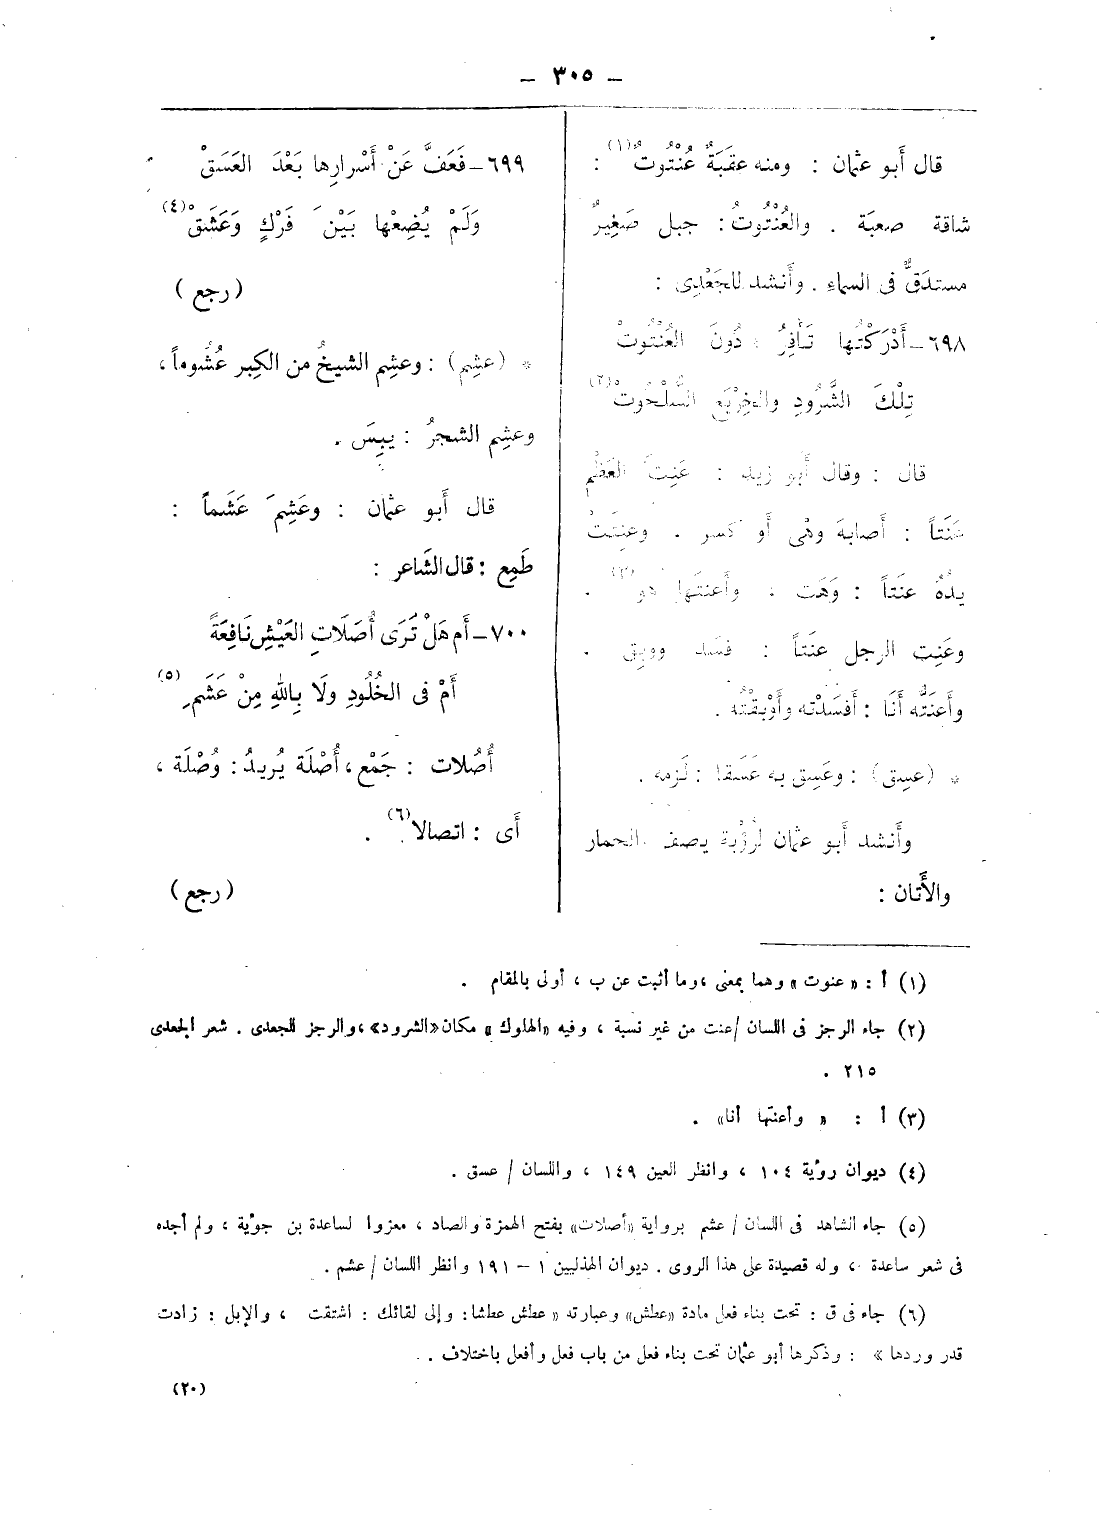 – ٣٠٥ –
قال أَبو عثمان : ومنه عقَبَةٌ عُنْتُوتٌ(١) :
شاقة صعبَة . والعُنْتُوتُ : جبل صَغِيرٌ
مستدَقٌّ فى السماءِ . وأَنشد للجَعْدِى :
٦٩٨ – أَدْرَكْتُها تَأْفِرُ دُونَ العُنْتُوتْ
تِلْكَ الشَّرُودِ والخِرْيَع السُّلْحُوتْ(٢)
قال : وقال أَبو زيد : عَنِتَ العَظْم
عَنَتاً : أَصابهَ وهْى أَو كسر . وعنِتَتْ
يدُهُ عنَتاً : وَهَت ، وأَعنَتَها هو(٣) .
وعَنِت الرجل عنَتاً : فسَد ووبِق .
وأَعنَتُّه أَنَا : أَفسَدْته وأَوْبقْتُه .
* (عسِق) : وعَسِق به عَسَقا : لَزمه .
وأَنشد أَبو عثمان لرؤْبة يصف الحمار
والأَتَان :
٦٩٩ – فَعَفَّ عَنْ أَسْرارِها بَعْدَ العَسَقْ
وَلَمْ يُضِعْها بَيْنَ فَرْكٍ وَعَشَقْ(٤)
(رجع)
* (عشِم) : وعشِم الشيخُ من الكِبر عُشُوماً ،
وعشِم الشجرُ : يبِسَ .
قال أَبو عثمان : وعَشِمَ عَشَماً :
طَمِع : قال الشَاعر :
٧٠٠ – أَم هَلْ تَرَى أُصَلَاتِ العَيْشِ نَافِعَةً
أَمْ فى الخُلُودِ ولَا بِاللهِ مِنْ عَشَمِ(٥)
أُصُلات : جَمْع ، أُصْلَة يُريدُ : وُصْلَة ،
أَى : اتصالا(٦) .
(رجع)
(١) أ : « عنوت » وهما بمعنى ، وما أثبت عن ب ، أولى بالمقام .
(٢) جاء الرجز فى اللسان / عنت من غير نسبة ، وفيه «الهلوك » مكان «الشرود» ، والرجز للجعدى . شعر الجعدى
٢١٥ .
(٣) أ : « وأعنتها أنا» .
(٤) ديوان رؤبة ١٠٤ ، وانظر العين ١٤٩ ، واللسان / عسق .
(٥) جاء الشاهد فى اللسان / عشم برواية «أصلات» بفتح الهمزة والصاد ، معزوا لساعدة بن جؤية ، ولم أجده
فى شعر ساعدة ، وله قصيدة على هذا الروى . ديوان الهذليين ١ – ١٩١ وانظر اللسان / عشم .
(٦) جاء فى ق : تحت بناء فعل مادة «عطش» وعبارته « عطش عطشا : وإلى لقائك : اشتقت ، والإبل : زادت
قدر وردها » : وذكرها أبو عثمان تحت بناء فعل من باب فعل وأفعل باختلاف .
(٢٠)